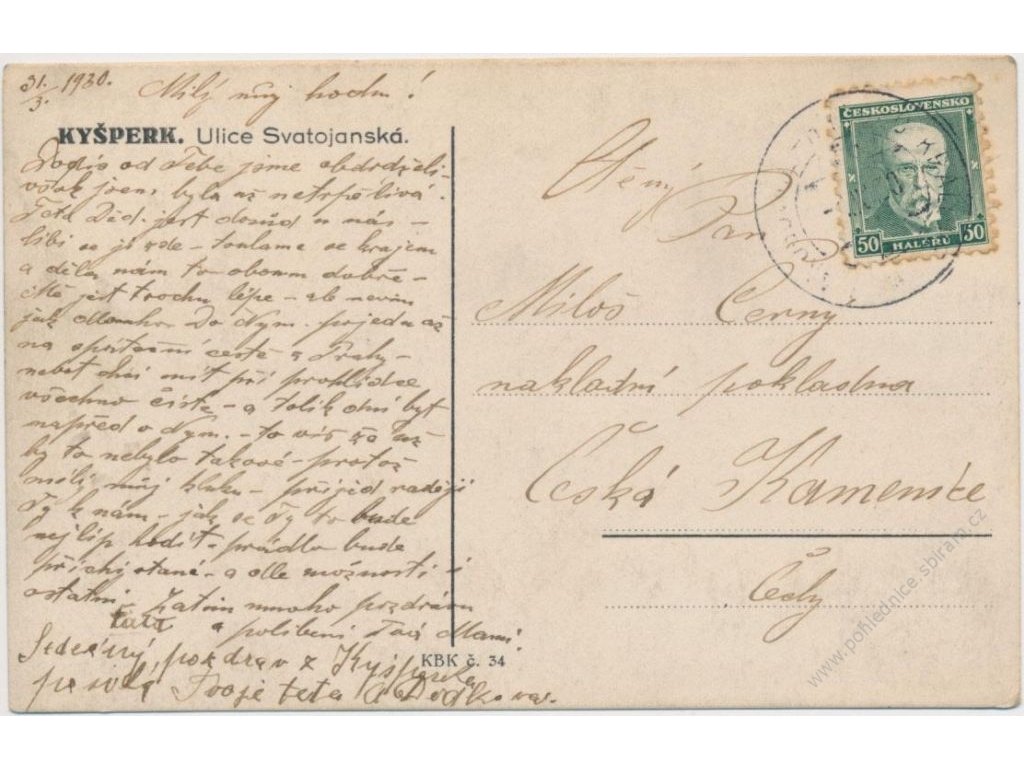 31. 1930.
3.
Milý můj hochu!
KYŠPERK. Ulice Svatojanská.
od Tebe jsme obdrželi.
však jsem byla už netrpělivá.
Teta Děd. jest dosud u nás -
líbí se jí zde - toulame se krajem
a dělá nám to oboum dobře -
Mě jest trochu lépe - ale nevím
jak dlouho. Do Nym. pojedu až
na zpáteční cestě z Prahy -
neboť chci mít při prohlídce
všechno čisté - a tolik dní být
napřed v Nym. - to víš že už
by to nebylo takové - protož
milý můj kluku - přijeď raději
Ty k nám - jak se Ty to bude
nejlíp hodit - prádlo bude
přichystané - a dle možnosti i
ostatní. Zatím mnoho pozdravů
táta a políbení Tvá Mami
Srdečný pozdrav z Kyšperka
posílá Tvoje teta
KBK č. 34
Ctěný
Pan
Miloš Černý
nakladní pokladna
Česká Kamenice
Čechy
ČESKOSLOVENSKO
50 HALÉŘŮ 50
www.pohlednice.sbiram.cz